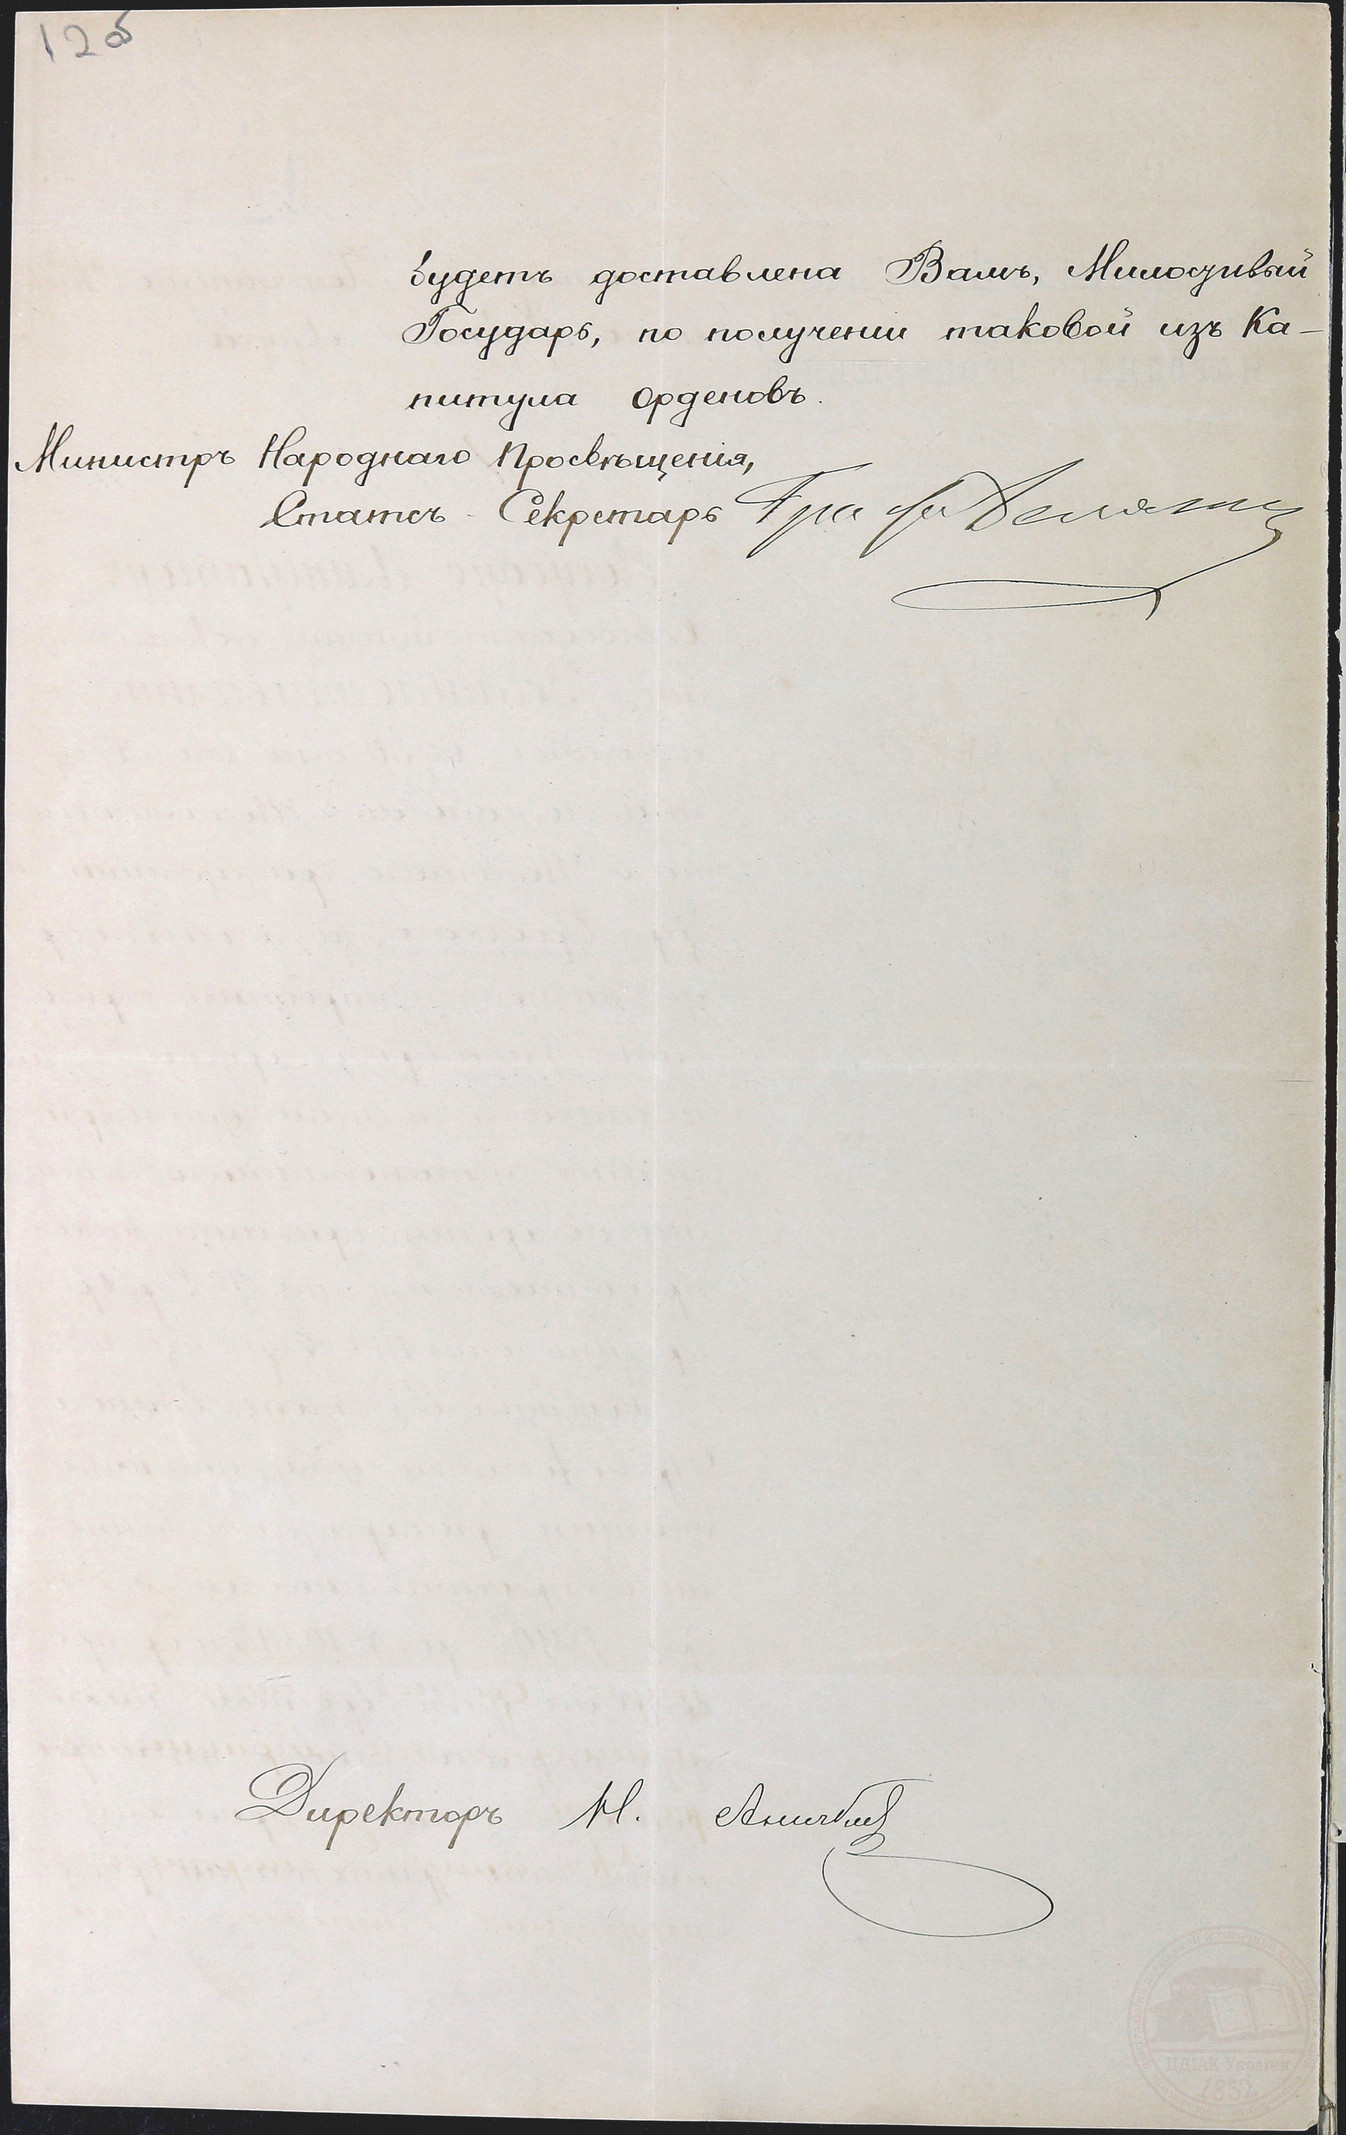 12об
будетъ доставлена Вамъ, Милостивый
Государь, по полученіи таковой изъ Ка-
питула орденовъ.
Министръ Народнаго Просвѣщенія,
Статсъ-Секретарь Графъ Деляновъ
Директоръ Н. Аничковъ
ЦДІАК України
1852